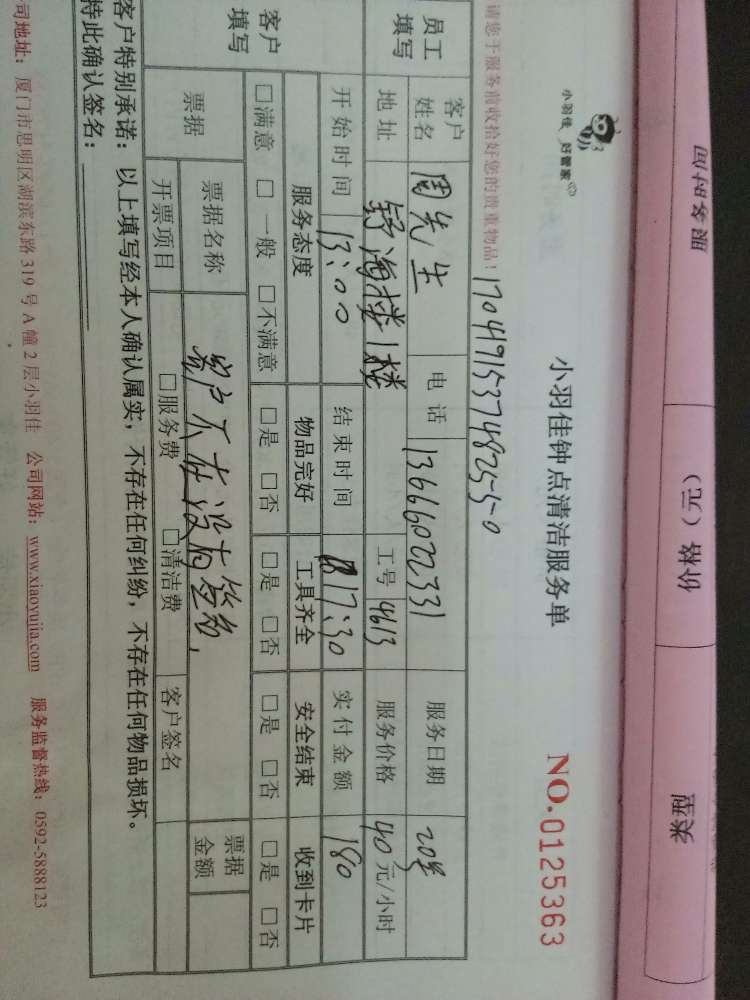 服务时间 价格（元） 类型
小羽佳 好管家
小羽佳钟点清洁服务单 NO.0125363
请您于服务前收拾好您的贵重物品！
员工填写 客户姓名 周先生 电话 13666022331 服务日期 20号
地址 海楼1楼 工号 4613 服务价格 40元/小时
开始时间 13:00 结束时间 17:30 实付金额 180
客户填写 服务态度 物品完好 工具齐全 安全结束 收到卡片
□满意 □一般 □不满意 □是 □否 □是 □否 □是 □否 □是 □否
票据 票据名称 客户不在没有签名, 票据金额
开票项目 □服务费 □清洁费 客户签名
客户特别承诺：以上填写经本人确认属实，不存在任何纠纷，不存在任何物品损坏。
特此确认签名：
司地址：厦门市思明区湖滨东路319号A幢2层小羽佳 公司网站：www.xiaoyujia.com 服务监督热线：0592-5888123